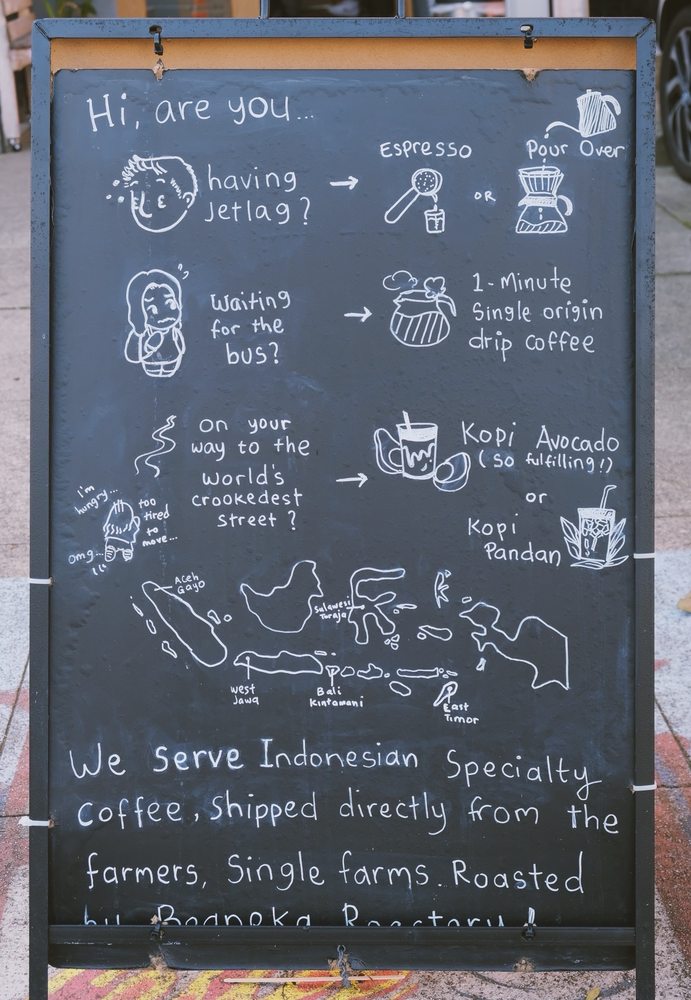 Hi, are you...
having
Jetlag?
Espresso
OR
Pour Over
Waiting
for the
bus?
1-Minute
Single origin
drip coffee
On your
way to the
world's
crookedest
street?
I'm
hungry...
too
tired
to
move...
omg...
Kopi Avocado
(so fulfilling!)
or
Kopi
Pandan
Aceh
Gayo
Sulawesi
Toraja
West
Jawa
Bali
Kintamani
East
Timor
We serve Indonesian Specialty
coffee, Shipped directly from the
farmers, Single farms. Roasted
by Beaneka Roastery!